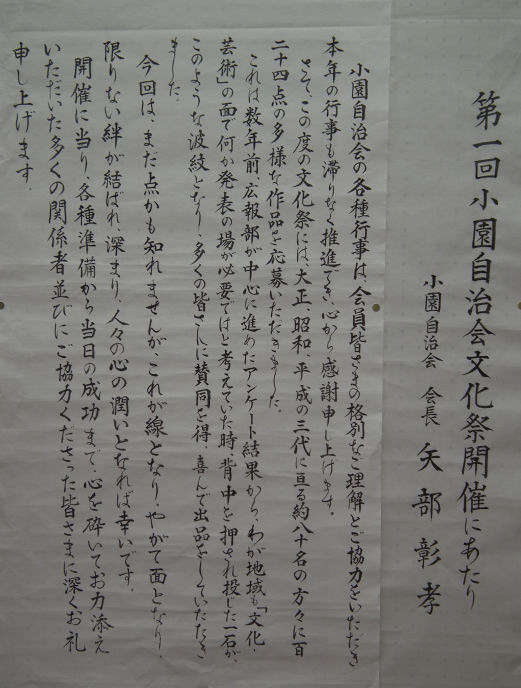 第一回小園自治会文化祭開催にあたり
小園自治会 会長 矢部彰孝
小園自治会の各種行事は、会員皆さまの格別なご理解とご協力をいただき
本年の行事も滞りなく推進でき、心から感謝申し上げます。
さて、この度の文化祭には、大正、昭和、平成の三代に亘る約八十名の方々に百
二十四点の多様な作品を応募いただきました。
これは数年前、広報部が中心に進めたアンケート結果から、わが地域も「文化・
芸術」の面で何か発表の場が必要ではと考えていた時、背中を押され投じた一石が、
このような波紋となり、多くの皆さんに賛同を得、喜んで出品をしていただき
ました。
今回は、まだ点かも知れませんが、これが線となり、やがて面となり、
限りない絆が結ばれ、深まり、人々の心の潤いとなれば幸いです。
開催に当り、各種準備から当日の成功まで、心を砕いてお力添え
いただいた多くの関係者並びにご協力くださった皆さまに深くお礼
申し上げます。